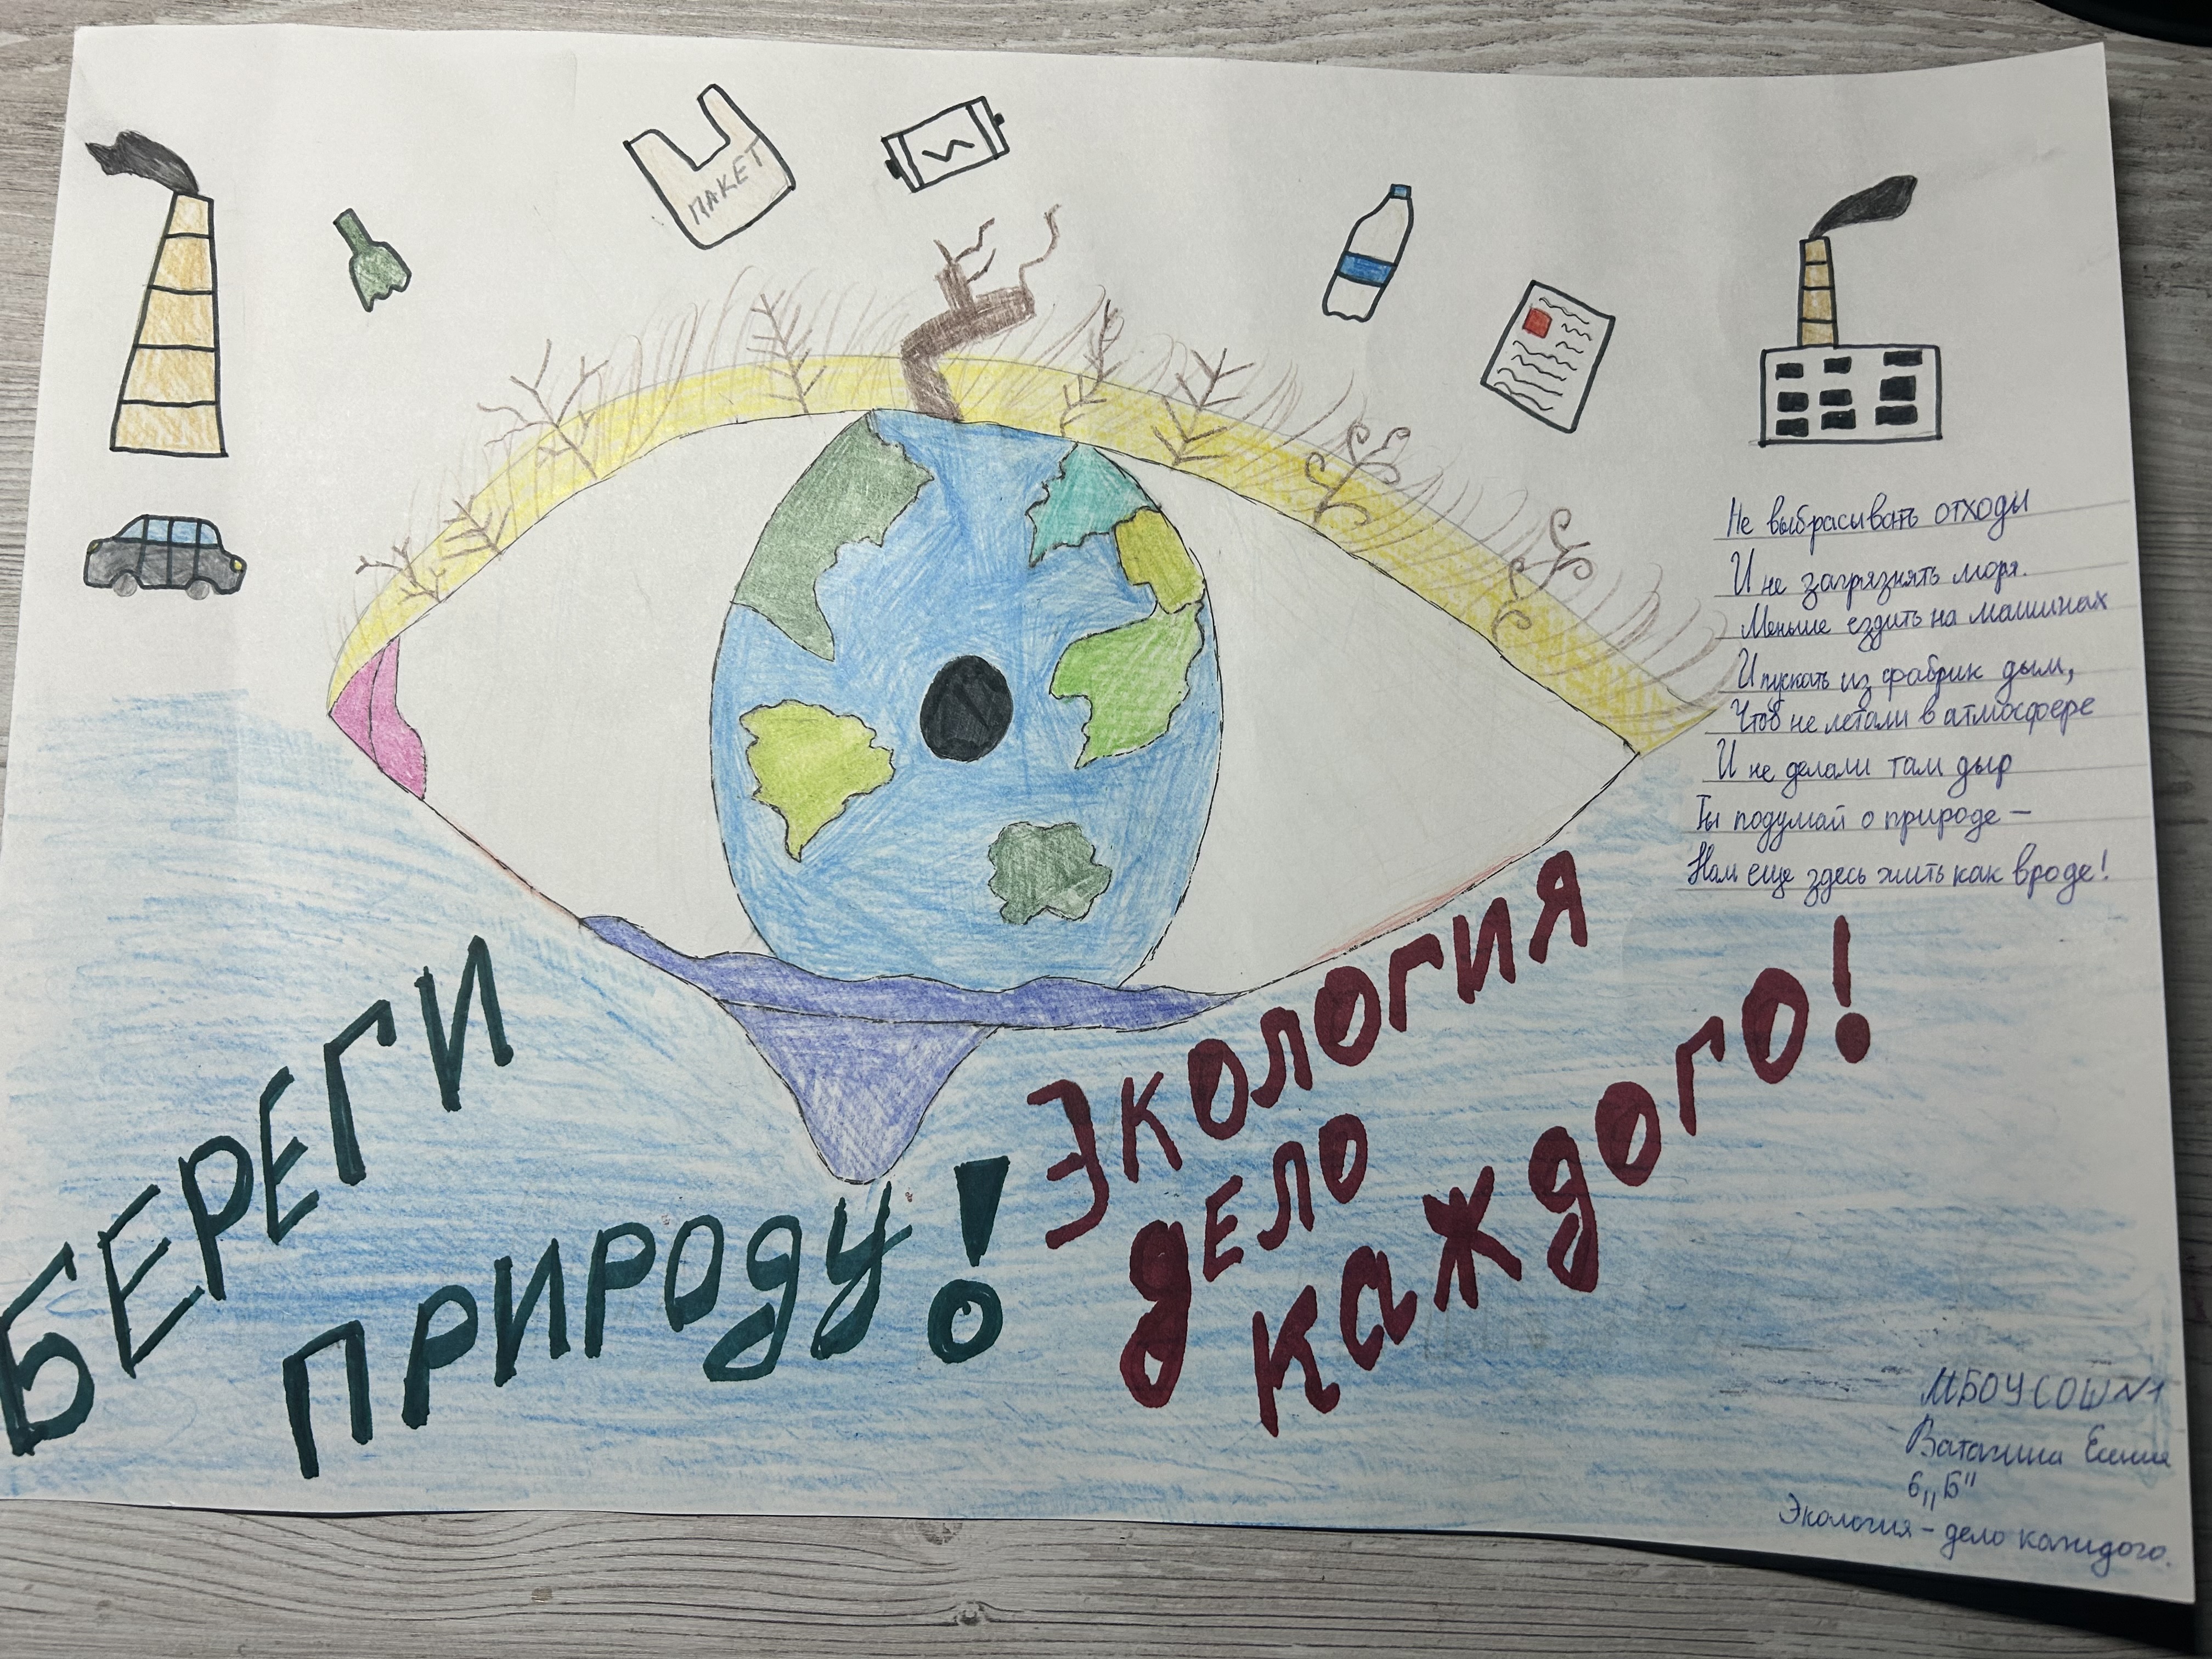 ПАКЕТ
Не выбрасывать отходы
И не загрязнять моря.
Меньше ездить на машинах
И пускать из фабрик дым,
Чтоб не летали в атмосфере
И не делали там дыр
Ты подумай о природе —
Нам еще здесь жить как вроде!
БЕРЕГИ
ПРИРОДУ!
ЭКОЛОГИЯ
ДЕЛО
КАЖДОГО!
МБОУСОШ№1
6 „Б"
Экология – дело каждого.